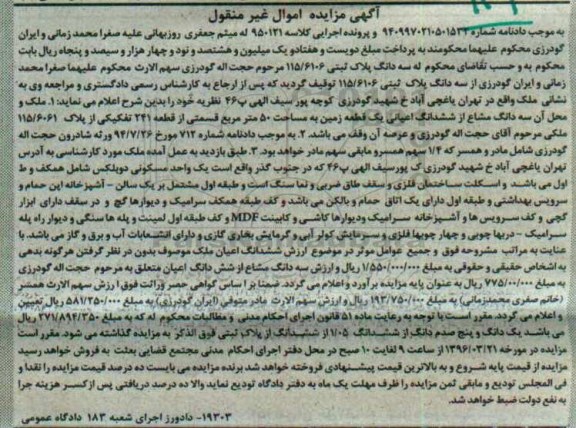 آگهی مزایده اموال غیر منقول
به موجب دادنامه شماره ۹۴۰۹۹۷۰۲۱۰۵۰۱۵۳۴ و پرونده اجرایی کلاسه ۹۵۰۱۲۱ له میثم جعفری روزبهانی علیه صفرا محمد زمانی و ایران
گودرزی محکوم علیهما محکومند به پرداخت مبلغ دویست و هفتادو یک میلیون و هشتصد و نود و چهار هزار و سیصد و پنجاه ریال بابت
محکوم به و حسب تقاضای محکوم له سه دانگ پلاک ثبتی ۱۱۵/۶۱۰۶ مرحوم حجت اله گودرزی سهم الارث محکوم علیهما صفرا محمد
زمانی و ایران گودرزی از سه دانگ پلاک ثبتی ۱۱۵/۶۱۰۶ توقیف گردید که پس از ارجاع به کارشناس رسمی دادگستری و مراجعه وی به
نشانی ملک واقع در تهران یاغچی آباد خ شهید گودرزی کوچه پور سیف الهی پ۴۶ نظریه خود را بدین شرح اعلام می نماید: ۱. ملک و
محل آن سه دانگ مشاع از ششدانگ اعیانی یک قطعه زمین به مساحت ۵۰ متر مربع قسمتی از قطعه ۲۴۱ تفکیکی از پلاک ۱۱۵/۶۰۶۱
ملکی مرحوم آقای حجت اله گودرزی و عرصه آن وقف می باشد. ۲. به موجب دادنامه شماره ۷۱۲ مورخ ۹۴/۷/۲۶ ورثه شادرون حجت اله
گودرزی شامل مادر و همسر که ۱/۴ سهم همسر و مابقی سهم مادر خواهد بود. ۳. طبق بازدید به عمل آمده ملک مورد کارشناسی به آدرس
تهران یاغچی آباد خ شهید گودرزی ک پورسیف الهی پ۴۶ که در جنوب گذر واقع است یک واحد مسکونی دوبلکس شامل همکف و ط
اول می باشد و اسکلت ساختمان فلزی و سقف طاق ضربی و نما سنگ است و طبقه اول مشتمل بر یک سالن - آشپزخانه این حمام و
سرویس بهداشتی و طبقه اول دارای یک اتاق حمام و بالکن می باشد و کف طبقه همکف سرامیک و دیوارها گچ و در سقف دارای ابزار
گچی و کف سرویس ها و آشپزخانه سرامیک ودیوارها کاشی و کابینت MDF و کف طبقه اول لمینت و پله ها سنگی و دیوار راه پله
سرامیک - دربها چوبی و چهار چوبها فلزی و سرمایش کولر آبی و گرمایش بخاری گازی و دارای انشعابات آب و برق و گاز می باشد. با
عنایت به مراتب مشروحه فوق و جمیع عوامل موثر در موضوع ارزش ششدانگ اعیان ملک موصوف بدون در نظر گرفتن هرگونه بدهی
به اشخاص حقیقی و حقوقی به مبلغ ۱/۵۵۰/۰۰۰/۰۰۰ ریال و ارزش سه دانگ مشاع از شش دانگ اعیان متعلق به مرحوم حجت اله گودرزی
به مبلغ ۷۷۵/۰۰/۰۰۰ ریال به عنوان پایه مزایده برآورد و اعلام می گردد. ضمنا بر اساس گواهی حصر وراثت فوق ارزش سهم الارث همسر
(خانم صفری محمدزمانی) به مبلغ ۱۹۳/۷۵۰/۰۰۰ ریال و ارزش سهم الارث مادر متوفی (ایران گودرزی) به مبلغ ۵۸۱/۲۵۰/۰۰۰ ریال تعیین
و اعلام می گردد. مقرر است با توجه به رعایت ماده ۵۱ قانون اجرای احکام مدنی و مطالبات محکوم له که به مبلغ ۲۷۱/۸۹۴/۳۵۰ ریال
می باشد یک دانگ و پنج صدم دانگ از ششدانگ ۱/۰۵ از ششدانگ از پلاک ثبتی فوق الذکر به مزایده گذاشته می شود. مقرر است
مزایده در مورخه ۱۳۹۶/۰۳/۲۱ از ساعت ۹ لغایت ۱۰ صبح در محل دفتر اجرای احکام مدنی مجتمع قضایی بعثت به فروش خواهد رسید
مزایده از قیمت پایه شروع و به بالاترین قیمت پیشنهادی فروخته خواهد شد برنده مزایده می بایست ده درصد قیمت مزایده را نقدا و
فی المجلس تودیع و مابقی ثمن مزایده را ظرف مهلت یک ماه به دفتر دادگاه تودیع نماید والا ده درصد دریافتی پس از کسر هزینه جرا
به نفع دولت ضبط خواهد شد.
۱۹۳۰۳- دادورز اجرای شعبه ۱۸۳ دادگاه عمومی